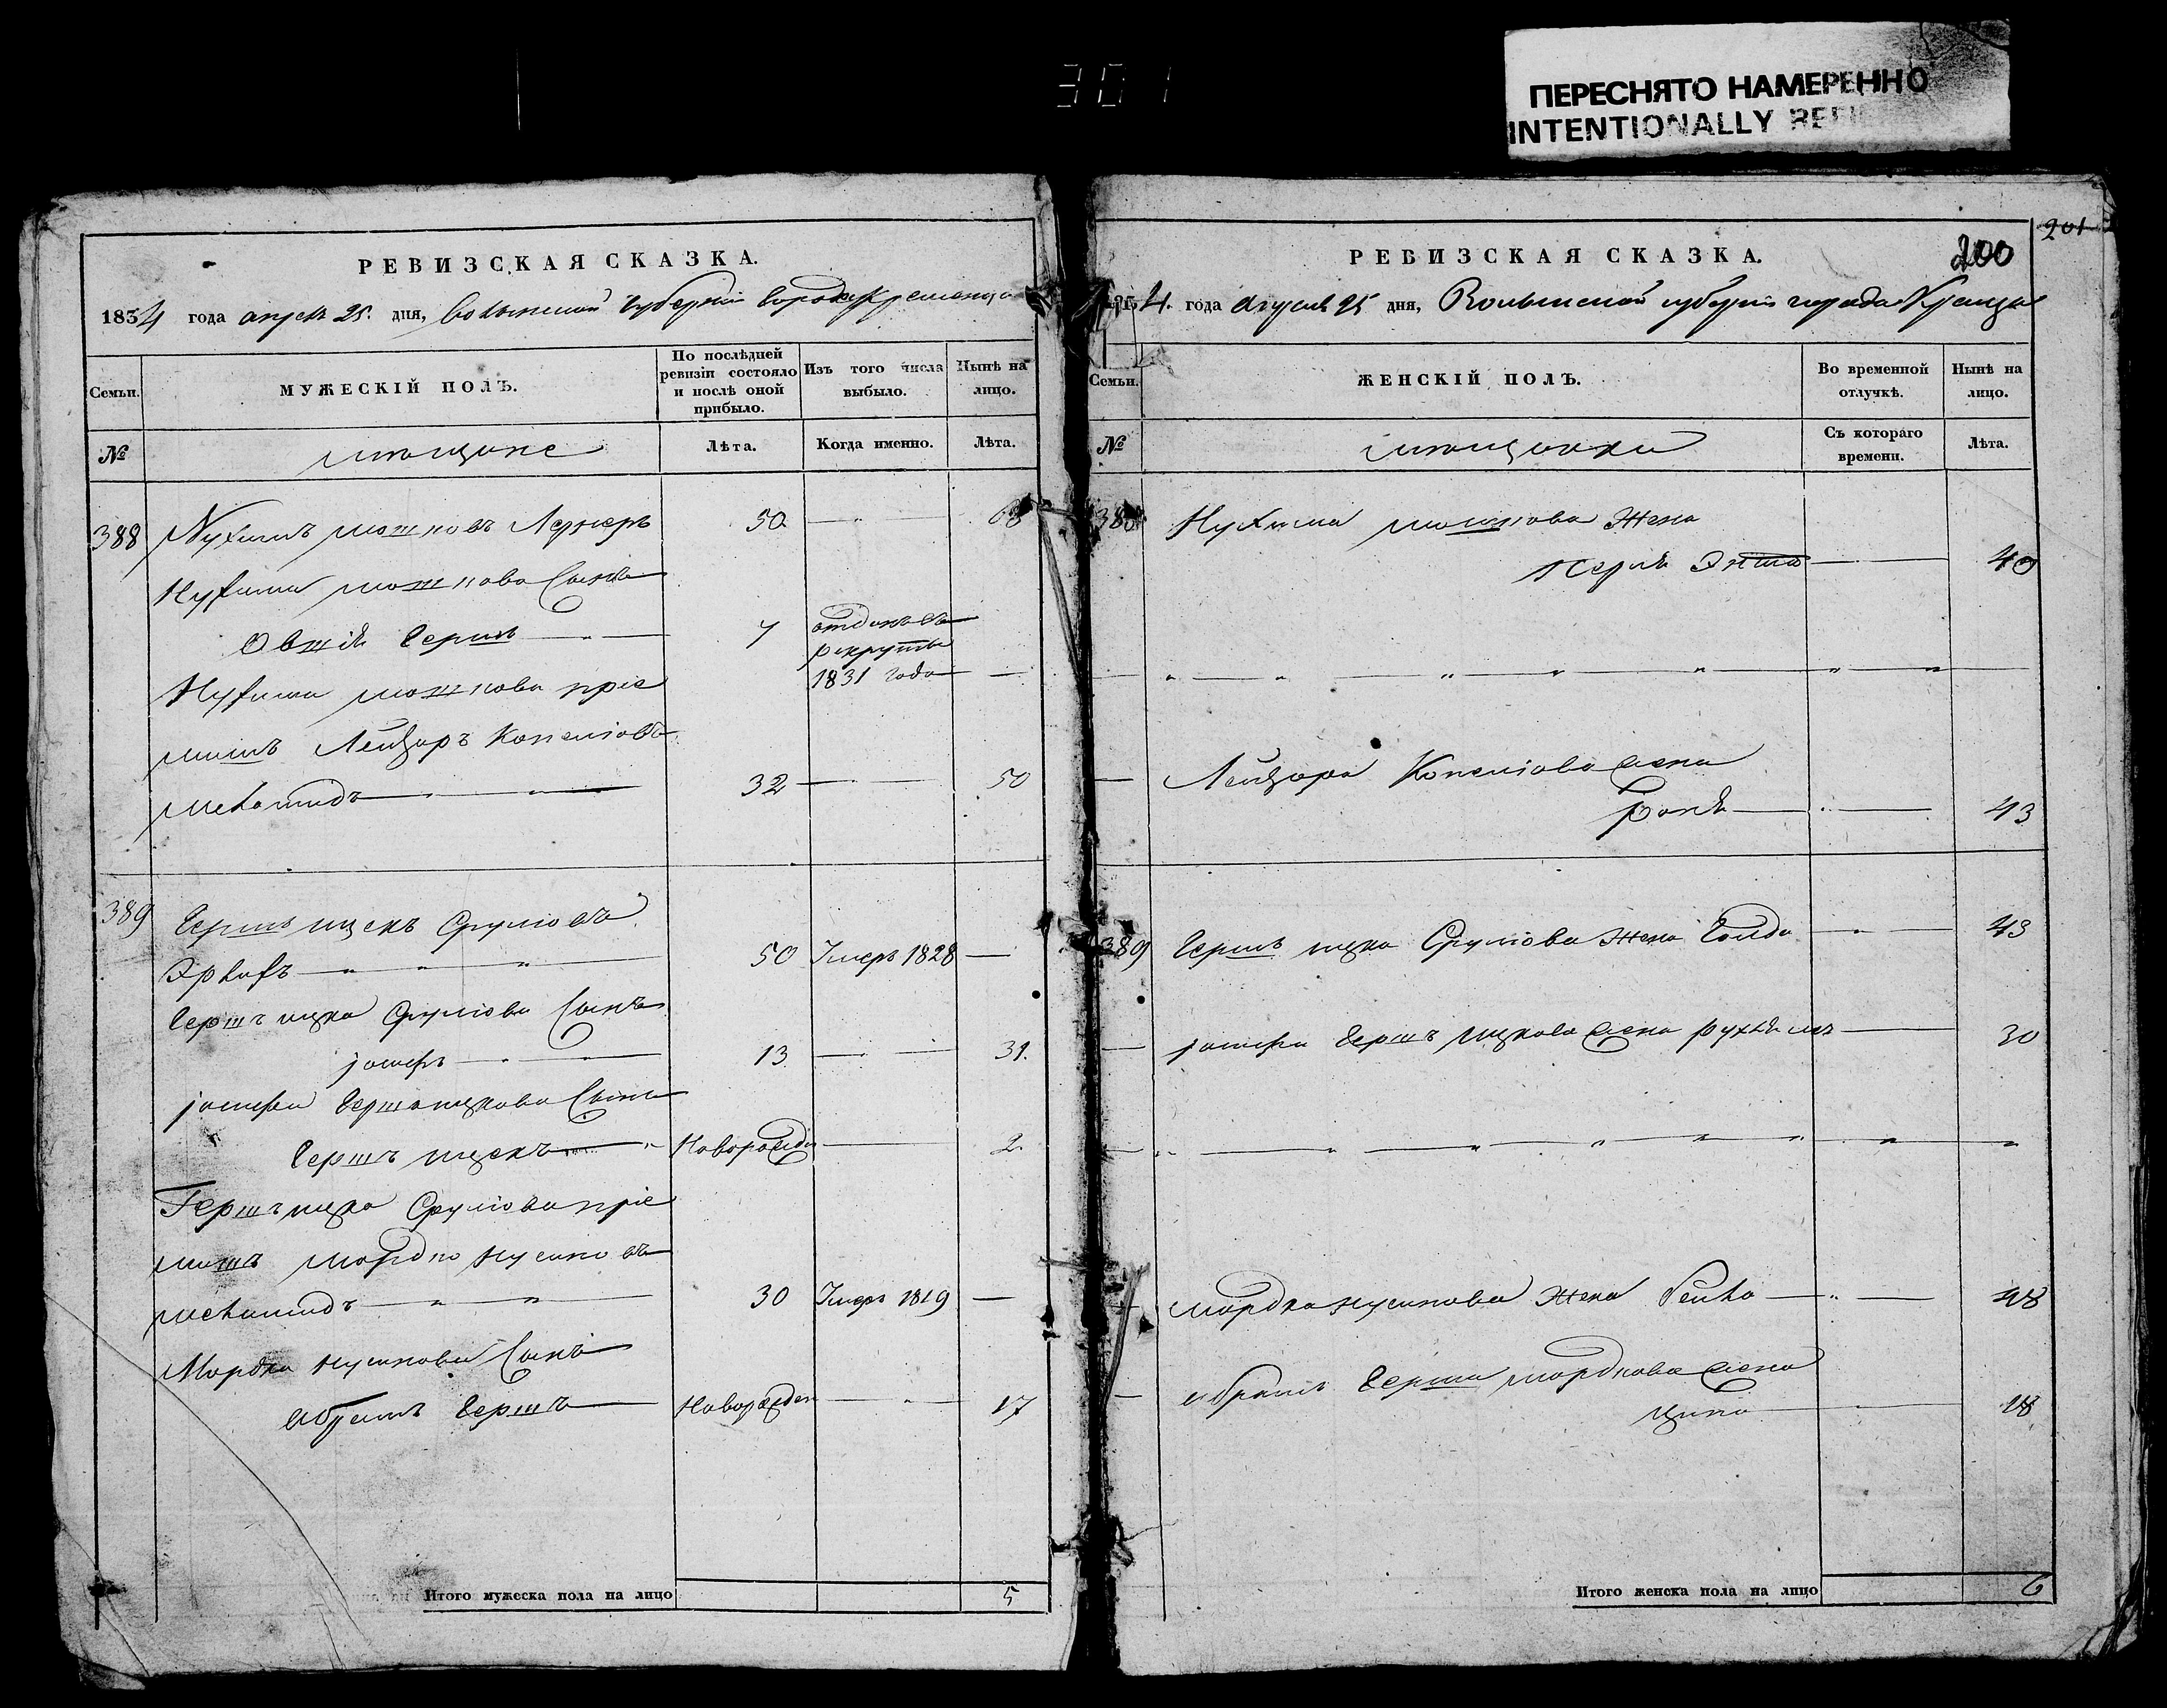 301
ПЕРЕСНЯТО НАМЕРЕННО
INTENTIONALLY
РЕВИЗСКАЯ СКАЗКА.
1834 года апреля 25. дня, Волынской губернии города Кременца
Семьи.
МУЖЕСКІЙ ПОЛЪ.
По послѣдней ревизіи состояло и послѣ оной прибыло.
Изъ того числа выбыло.
Нынѣ на лицо.
№
мещане
Лѣта.
Когда именно.
Лѣта.
388 Нухимъ мошковъ 50. 68
Нухима мошкова Сынъ
Овшія Герш 7 отданъ въ
рекруты
1831 года
Нухима мошкова пріе
мышъ Лейзоръ Копелiовъ
32 50
389 Гершъ ицекъ Срулiовъ
50 Умеръ 1828
Гершъ ицка Срулiова Сынъ
іосифъ 13 31.
іосифа Гершъ ицкова Сынъ
Гершъ ицекъ Новорожден 2.
Гершъ ицка Срулiова пріе
мышъ мордко нусиновъ
30 Умеръ 1819
Мордка нусинова Сынъ
абрамъ Гершъ Новорожден 17
Итого мужеска пола на лицо 5
201
200
РЕВИЗСКАЯ СКАЗКА.
4. года апреля 25 дня, Волынской губерніи города Кременца
Семьи.
ЖЕНСКІЙ ПОЛЪ.
Во временной отлучкѣ.
Нынѣ на лицо.
№
мещанки
Съ котораго времени.
Лѣта.
388 Нухима мошкова Жена
Перля Энта 40
Лейзора Копелiова жена
43
389 Гершъ ицка Срулiова Жена Голда 43
іосифа Гершъ ицкова жена рухля 30
мордка нусинова Жена Бейла 48
абрамъ Герша мордкова жена
Ципа 18
Итого женска пола на лицо 6